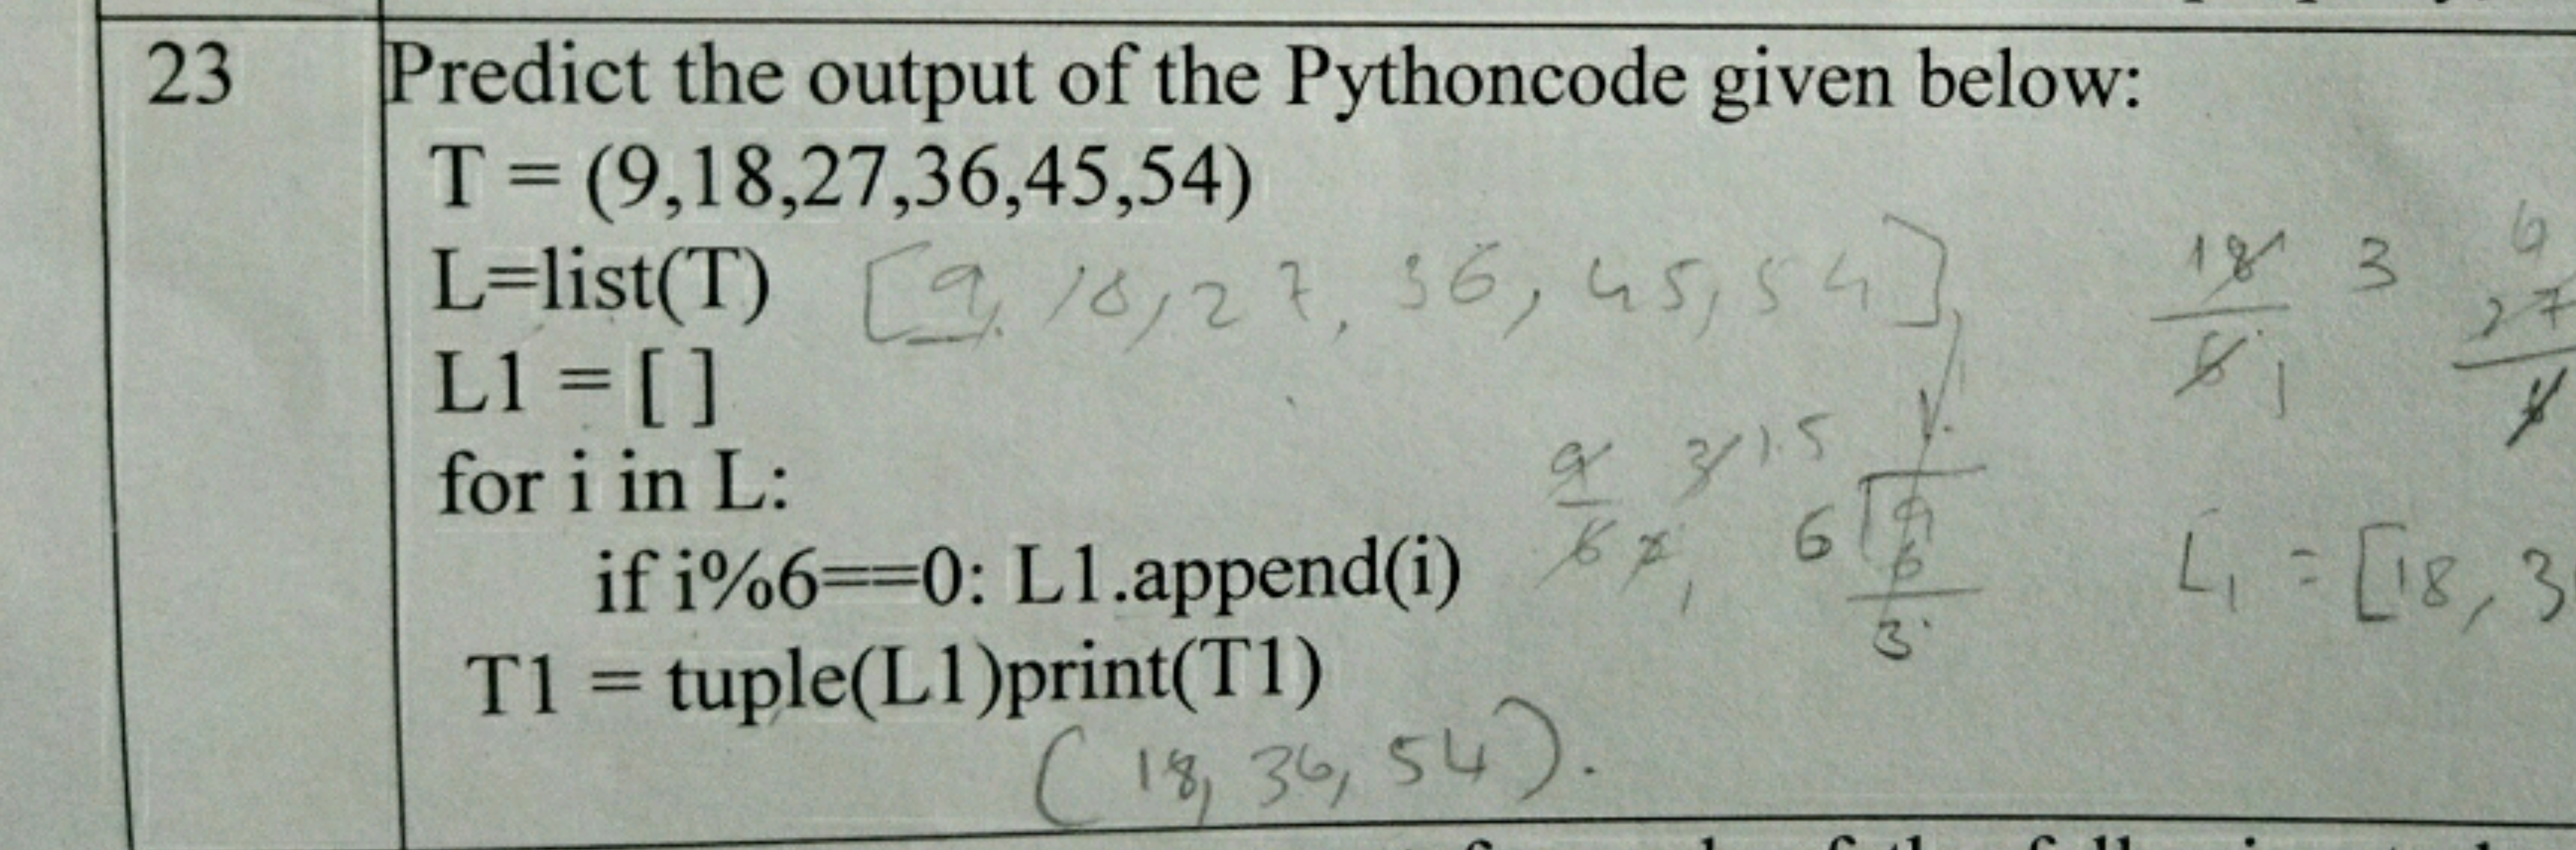 23
Predict the output of the Pythoncode given below:
T = (9,18,27,36,45,54)
L=list(T) [9, 18, 27, 36, 45, 54]
18 3
27
L1 = [ ]
for i in L:
9 3 1.5
6 9
6
3
if i%6==0: L1.append(i)
L1 = [18, 3
T1 = tuple(L1)print(T1)
(18, 36, 54).